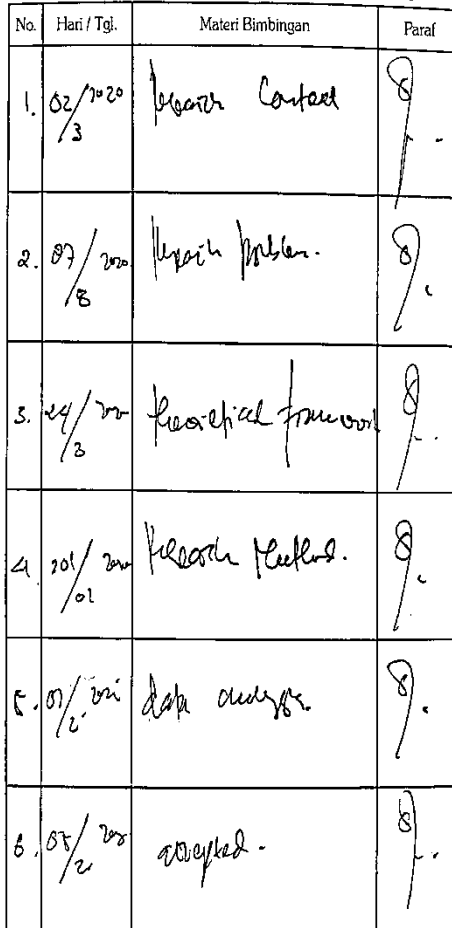 No. Hari / Tgl. Materi Bimbingan Paraf
1. 02/3 2020 Research Context
2. 07/8 2020 Research problem.
3. 24/3 theoretical framework
4. Research Method.
5. data analysis.
6. accepted.